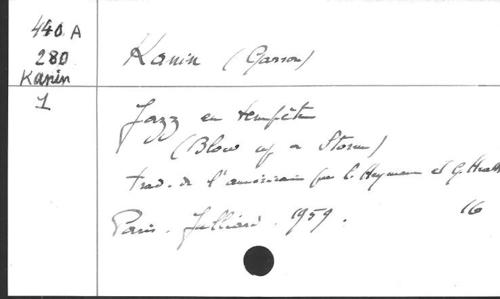 440 A
280
Kanin
1
Kanin (Garson)
Jazz en tempête
(Blow up a Storm)
trad. de l'américain par C. Heymann et G. Heath
Paris. Julliard. 1959.
16